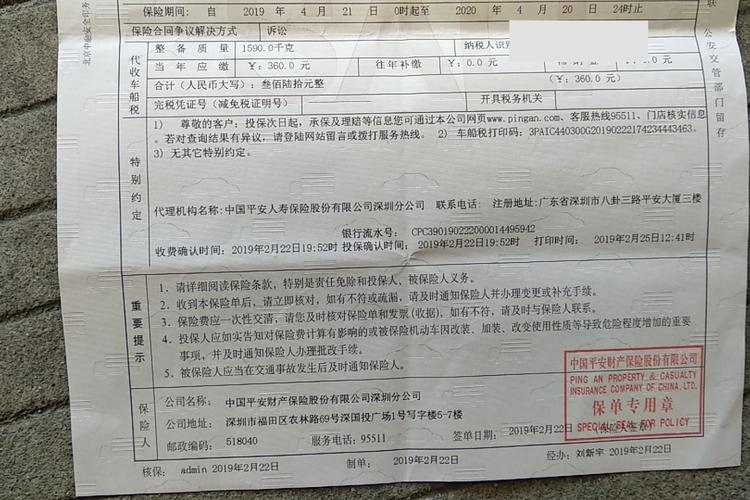 保险期间： 自 2019 年 4 月 21 日 0时起至 2020 年 4 月 20 日 24时止
保险合同争议解决方式 诉讼
代收车船税
整 备 质 量 1590.0千克 纳税人识别
当 年 应 缴 ￥: 360.0 元 往 年 补 缴 ￥: 0.0 元
合计（人民币大写）: 叁佰陆拾元整 （￥: 360.0 元）
完税凭证号（减免税证明号） 开具税务机关
特别约定
1） 尊敬的客户：投保次日起，承保及理赔等信息您可通过本公司网页www.pingan.com、客服热线95511、门店核实信息
。若对查询结果有异议，请登陆网站留言或拨打服务热线。 2） 车船税打印码: 3PAIC440300G20190222174234443463。
3）无其它特别约定。
代理机构名称:中国平安人寿保险股份有限公司深圳分公司 联系电话: 注册地址:广东省深圳市八卦三路平安大厦三楼
银行流水号: CPC390190222000014495942
收费确认时间: 2019年2月22日19:52时 投保确认时间: 2019年2月22日19:52时 打印时间: 2019年2月25日12:41时
重要提示
1. 请详细阅读保险条款，特别是责任免除和投保人、被保险人义务。
2. 收到本保险单后，请立即核对，如有不符或疏漏，请及时通知保险人并办理变更或补充手续。
3. 保险费应一次性交清，请您及时核对保险单和发票（收据），如有不符，请及时与保险人联系。
4. 投保人应如实告知对保险费计算有影响的或被保险机动车因改装、加装、改变使用性质等导致危险程度增加的重要
事项，并及时通知保险人办理批改手续。
5. 被保险人应当在交通事故发生后及时通知保险人。
保险人
公司名称: 中国平安财产保险股份有限公司深圳分公司
公司地址: 深圳市福田区农林路69号深国投广场1号写字楼5-7楼
邮政编码: 518040 服务电话: 95511 签单日期: 2019年2月22日 （保险人签章）
中国平安财产保险股份有限公司
PING AN PROPERTY & CASUALTY
INSURANCE COMPANY OF CHINA, LTD.
保单专用章
SPECIAL SEAL FOR POLICY
核保: admin 2019年2月22日 制单: 2019年2月22日 经办: 刘新宇 2019年2月22日
联
公安交管部门留存